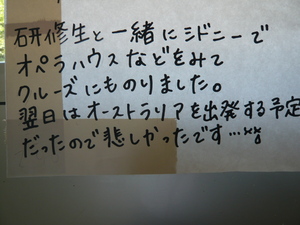 研修生と一緒にシドニーで
オペラハウスなどをみて
クルーズにものりました。
翌日はオーストラリアを出発する予定
だったので悲しかったです…